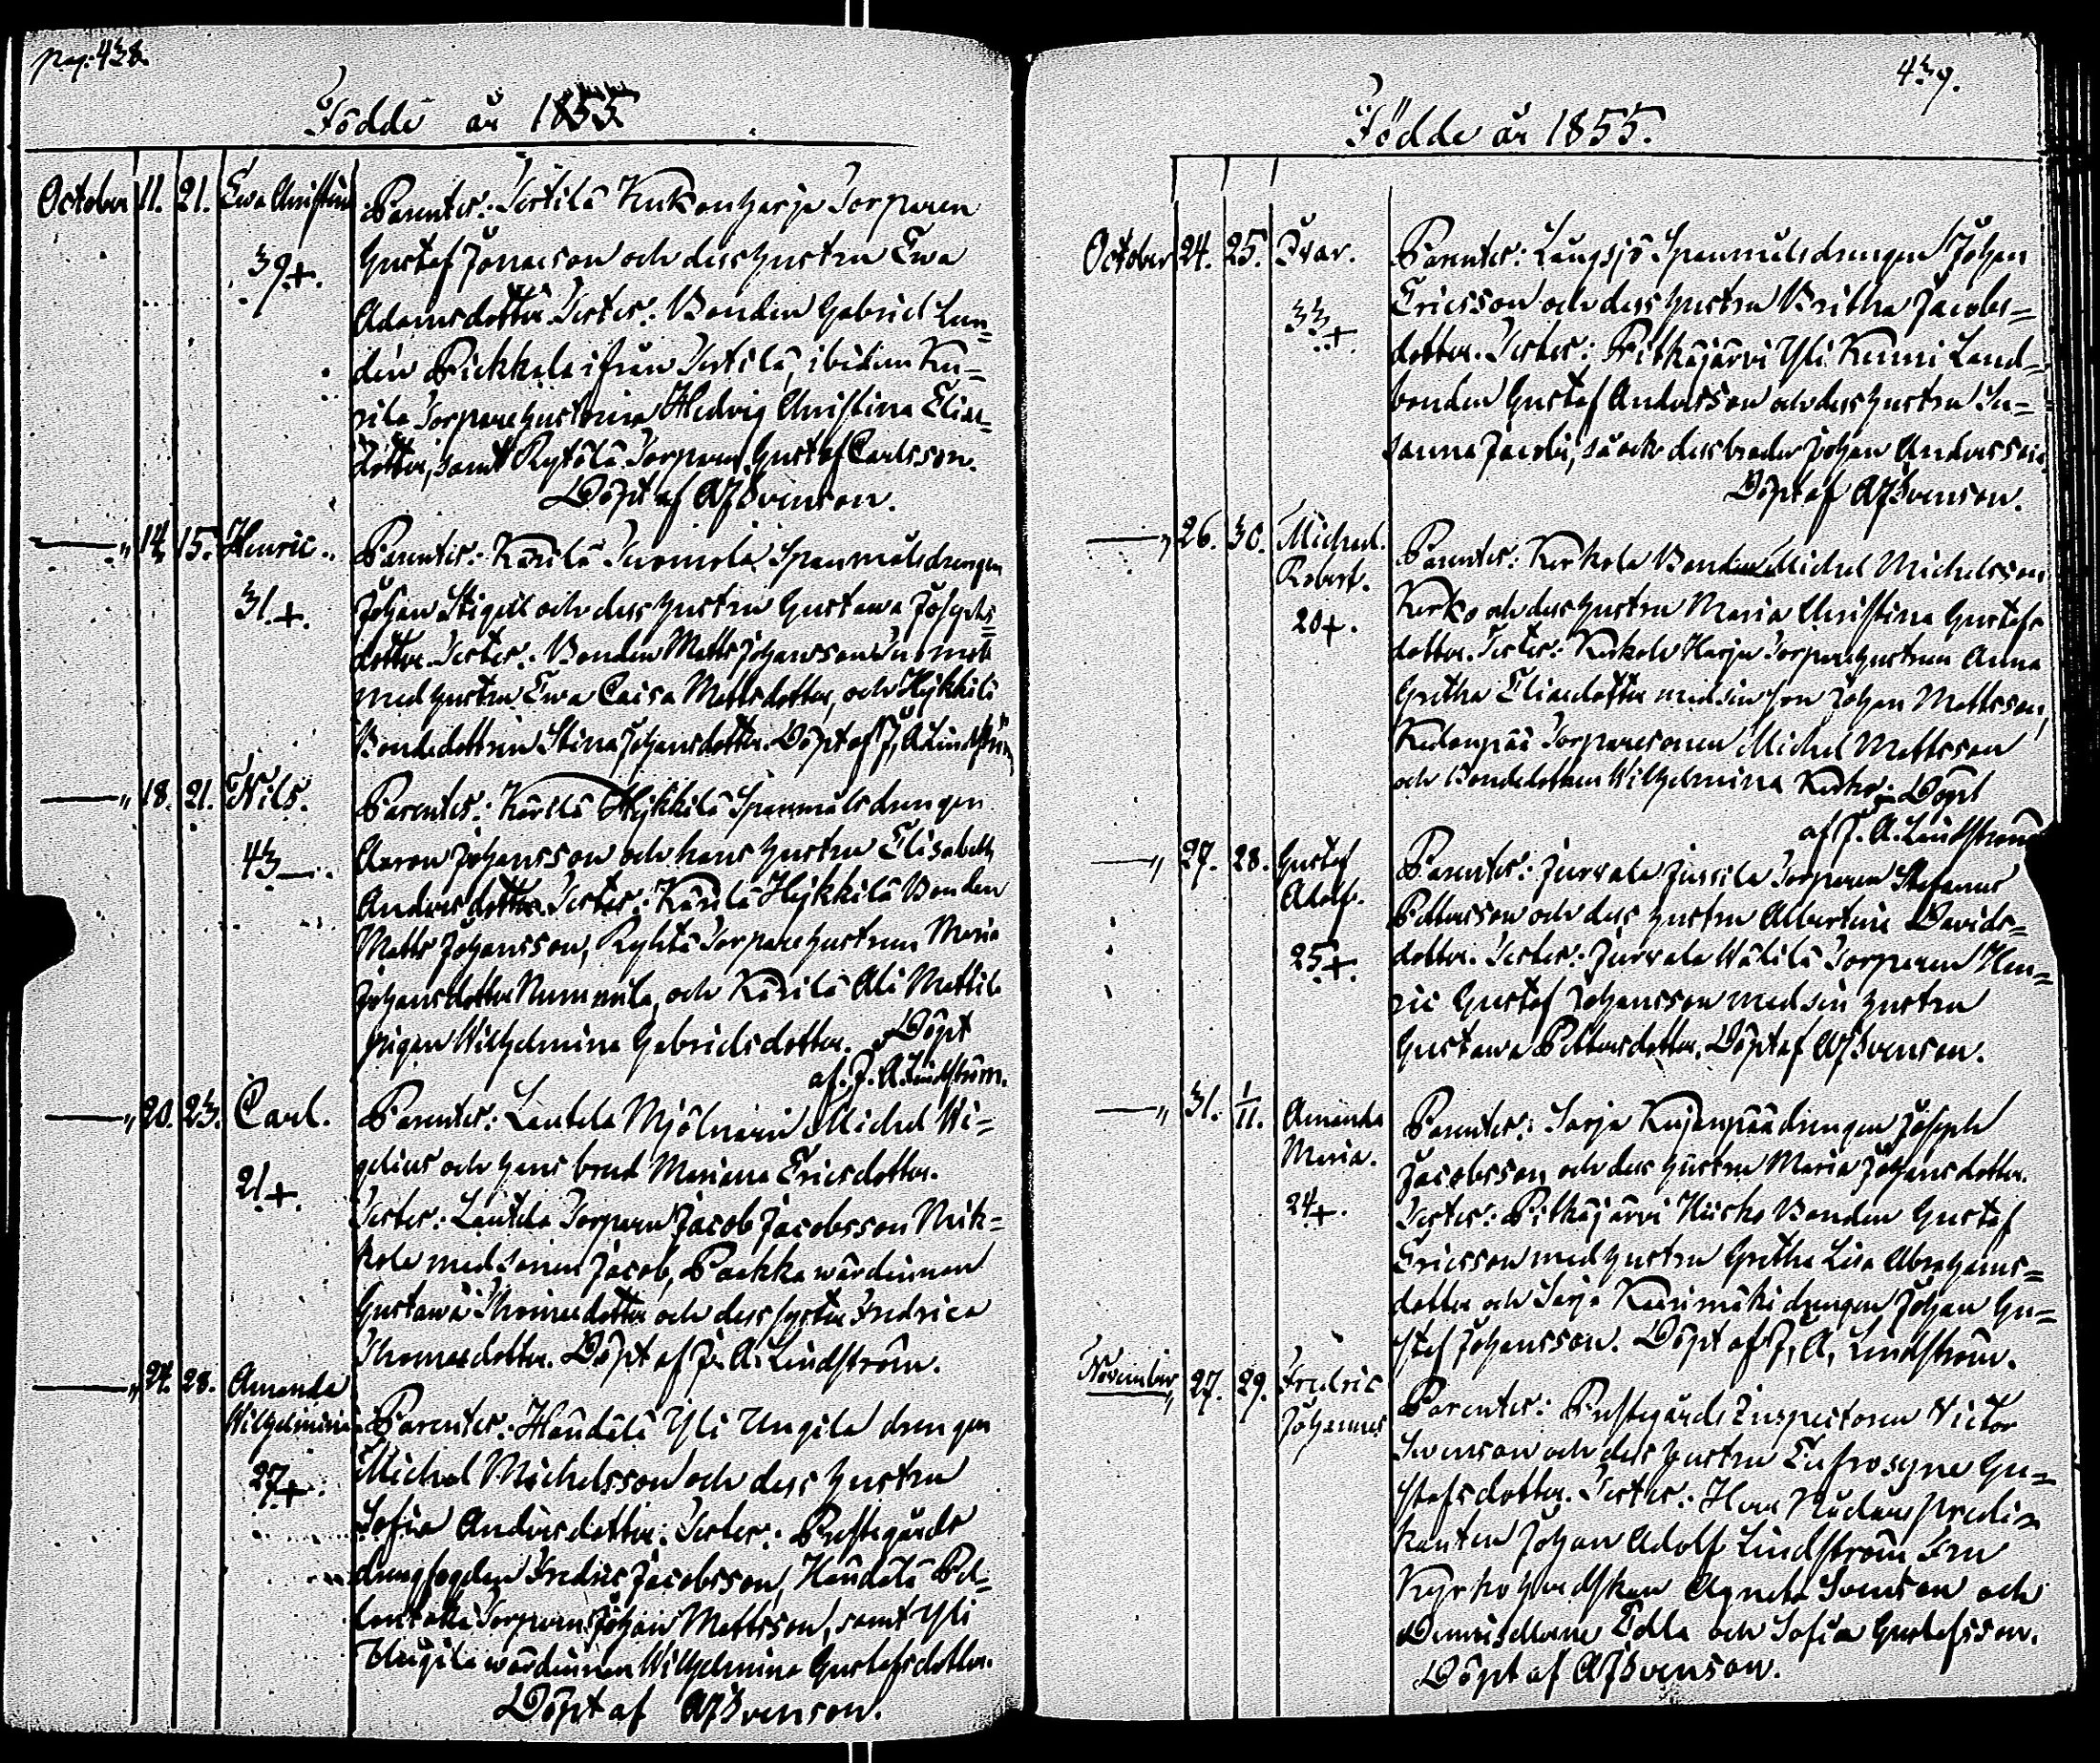 pag. 438.
Födde år 1855.
October 11. 21. Ewa Christina
39+.
Parenter: Sertilä Kukonharja Torparen
Gustaf Jonasson och dess hustru Ewa
Adamsdotter. Tester: Bonden Gabriel Lun=
dén Pickkala ifrån Sertilä, ibidem Ku=
sila Torparehustrun Hedvig Christina Elias=
dotter, samt Rytölä Torparen Gustaf Carlsson.
Döpt af AJSvenson.
—" 14. 15. Henric.
31.+.
Parenter: Kärilä Tuomola Spanmålsdrengen
Johan Stigell och dess hustru Gustawa Josephs=
dotter. Tester: Bonden Matts Johansson Tuomola
med hustru Ewa Caisa Mattsdotter, och Hejkkilä
Bondedottren Stina Johansdotter. Döpt af J. A Lindström
—" 18. 21. Nils.
43—.
Parenter: Kärilä Hejkkilä Spanmålsdrengen
Aaron Johansson och hans hustru Elisabeth
Andersdotter. Tester: Kärilä Hejkkilä Bonden
Matts Johansson, Torparehustrun Maria
Johansdotter Nummila, och Kärilä Ali Mattila
pigan Wilhelmina Gabrielsdotter. Döpt
af J. A. Lindström.
—" 20. 23. Carl.
21+.
Parenter: Lautela Mjölnaren Michel Wi=
gelius och hans brud Mariana Ericsdotter.
Tester: Lautela Torparen Jacob Jacobsson Nik=
kola med sonen Jacob, Paakka wärdinnan
Gustawa Thomasdotter och dess syster Fredrica
Thomasdotter. Döpt af J. A. Lindström.
—" 24. 28. Amanda
Wilhelmina
27+.
Parenter: Haudelä Yli Ungila drengen
Michel Michelsson och dess hustru
Sofia Andersdotter. Tester: Prestegårds
drengfogden Fredric Jacobsson, Haudelä
Torparen Johan Mattsson, samt Yli
Ungila wärdinnan Wilhelmina Gustafsdotter.
Döpt af AJSvenson.
439.
Födde år 1855.
October 24. 25. Ivar.
33+.
Parenter: Laugsjö Spanmålsdrengen Johan
Ericsson och dess hustru Britha Jacobs=
dotter. Tester: Pitkäjärvi Yli Kenni Land=
bonden Gustaf Andersson och dess hustru Su=
sanna Jacobs, så ock dess broder Johan Andersson
Döpt af AJSvenson.
—" 26. 30. Michel
Robert.
20+.
Parenter: Kerkola Bonden Michel Michelsson
Kerko och dess hustru Maria Christina Gustafs
dotter. Tester: Kerkola Harju Torparehustrun Anna
Gretha Eliasdotter med sin son Johan Mattsson,
Torparesonen Michel Mattsson
och Bondedottren Wilhelmina Kerko. Döpt
af J. A. Lindström
—" 27. 28. Gustaf
Adolf.
25+.
Parenter: Jurvala Jussila Torparen Stefanus
Pettersson och dess hustru Albertina Davids=
dotter. Tester: Jurvala Wälilä Torparen Hen=
ric Gustaf Johansson med sin hustru
Gustawa Pettersdotter. Döpt af AJSvenson.
—" 31. 1/11. Amanda
Maria.
24+.
Parenter: Sarja Kujanpäädrengen Joseph
Jacobsson och dess hustru Maria Johansdotter.
Tester: Pitkäjärvi Hurko Bonden Gustaf
Ericsson med hustru Gretha Lisa Abrahams=
dotter och Sarja Karimäki drengen Johan Gu=
staf Johansson. Döpt af J. A. Lindström.
November 27. 29. Fredric
Johannes
Parenter: Prestegårds Inspectoren Victor
Svenson och dess hustru Eufrosyne Gu=
stafsdotter. Tester: Herr Nådens predi=
kanten Johan Adolf Lindström Fru
Kyrkoherdskan Agneta Svenson och
Demoisellerne Edla och Sofia Gustafsson.
Döpt af AJSvenson.